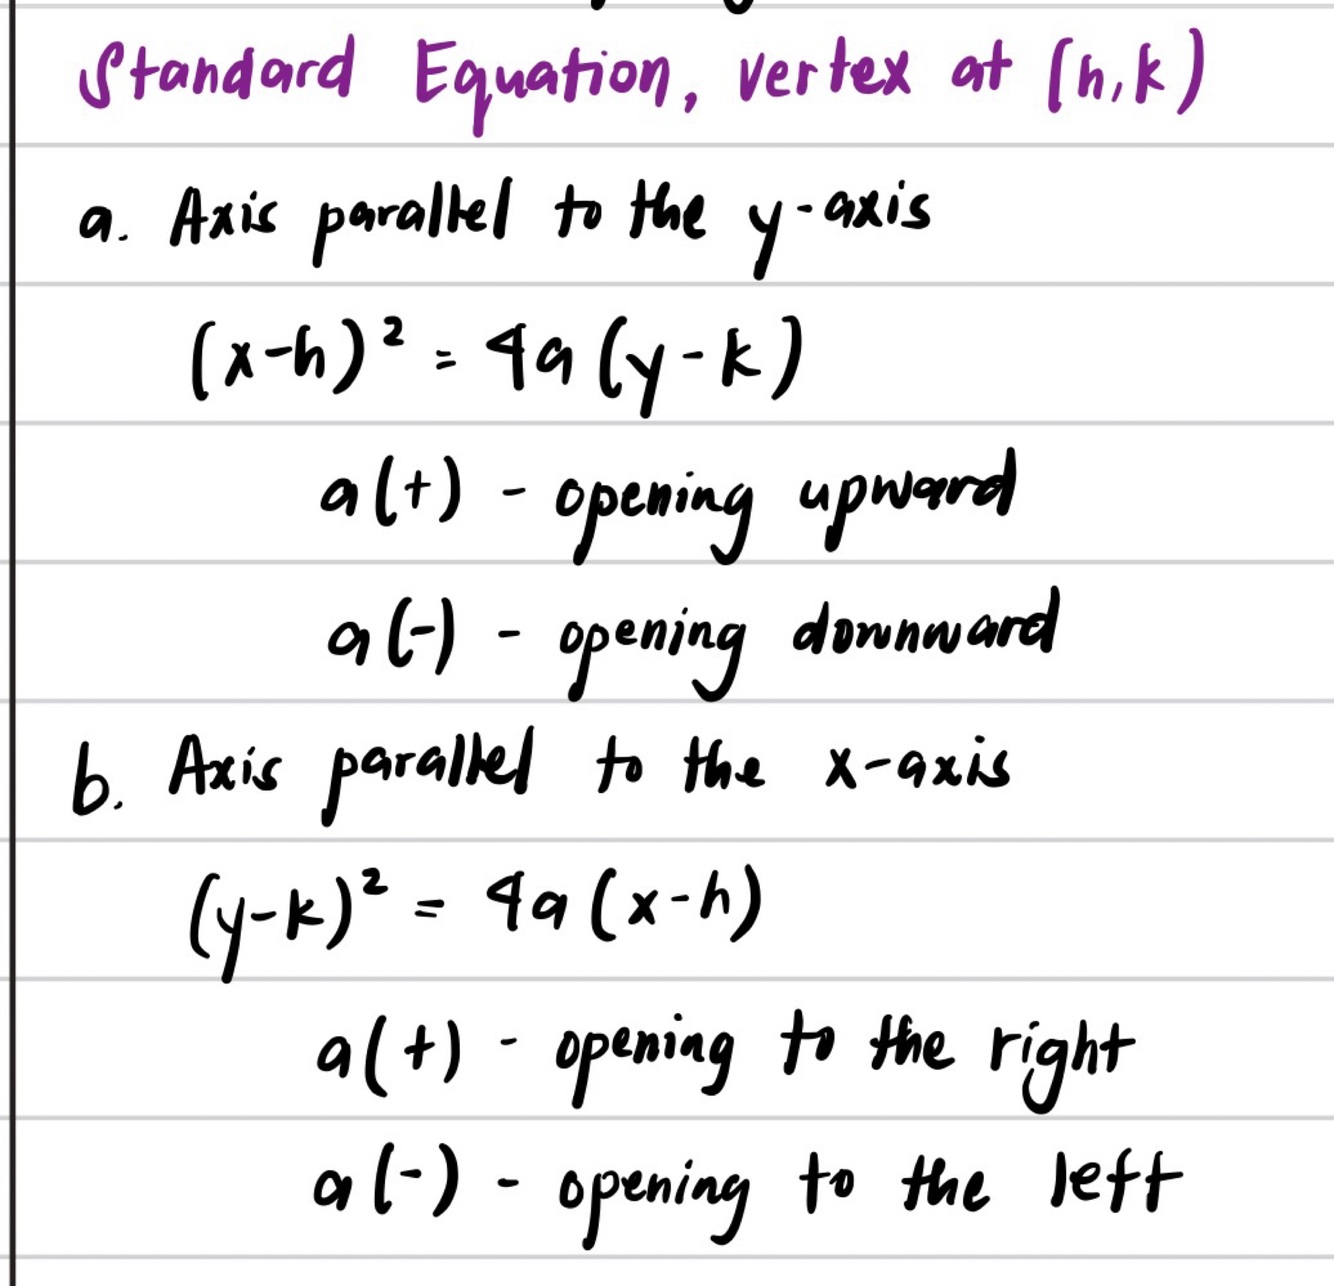 Standard Equation, vertex at (h,k)
a. Axis parallel to the y-axis
(x-h)² = 4a (y-k)
a(+) - opening upward
a(-) - opening downward
b. Axis parallel to the x-axis
(y-k)² = 4a (x-h)
a(+) - opening to the right
a(-) - opening to the left